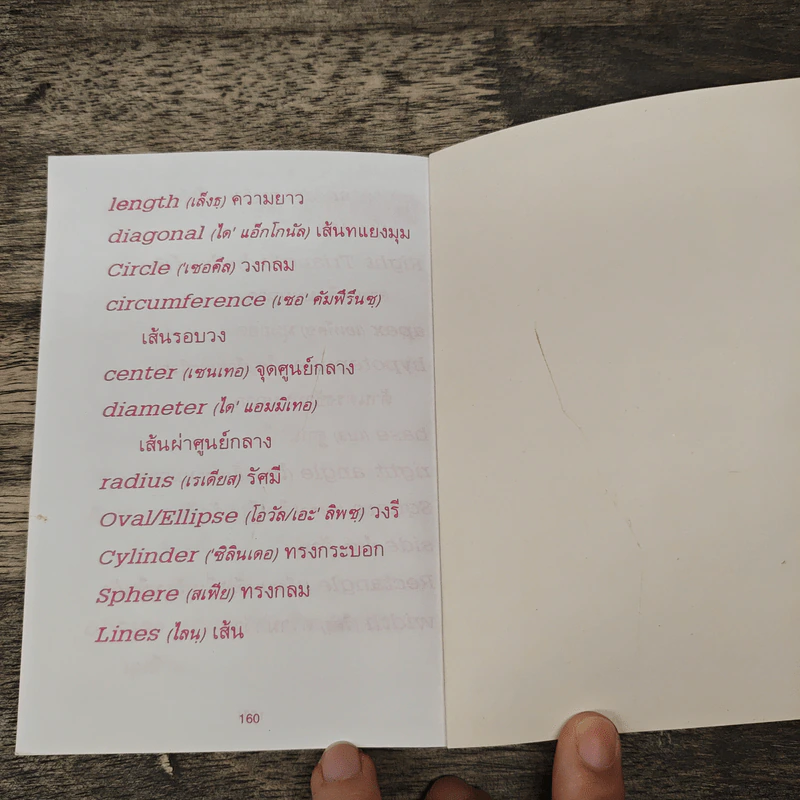 length (เล็งธฺ) ความยาว
diagonal (ได' แอ็กโกนัล) เส้นทแยงมุม
Circle ('เซอคึล) วงกลม
circumference (เซอ' คัมฟีรึนซฺ)
เส้นรอบวง
center (เซนเทอ) จุดศูนย์กลาง
diameter (ได' แอมมิเทอ)
เส้นผ่าศูนย์กลาง
radius (เรเดียส) รัศมี
Oval/Ellipse (โอวัล/เอะ' ลิพซฺ) วงรี
Cylinder ('ซิลินเดอ) ทรงกระบอก
Sphere (สเฟีย) ทรงกลม
Lines (ไลนฺ) เส้น
160